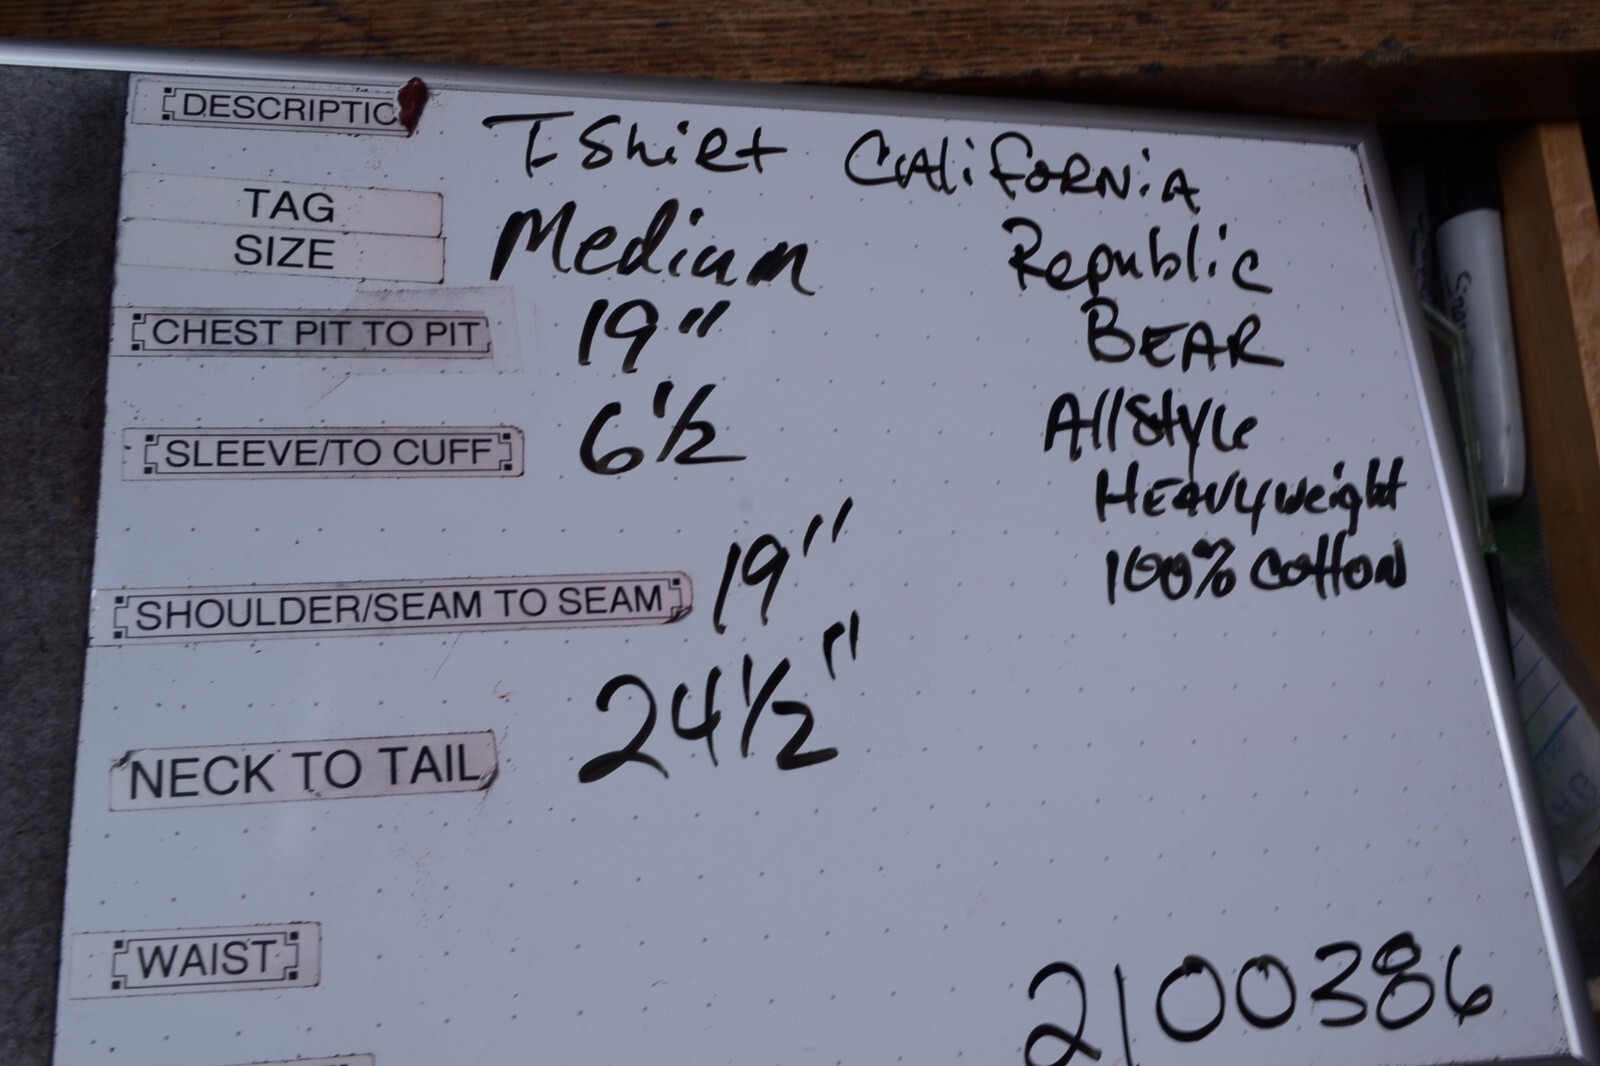 DESCRIPTIO TShirt California
TAG
SIZE Medium Republic
CHEST PIT TO PIT 19" BEAR
SLEEVE/TO CUFF 6 1/2 AllStyle
Heavyweight
100% Cotton
SHOULDER/SEAM TO SEAM 19"
NECK TO TAIL 24 1/2"
WAIST
2100386